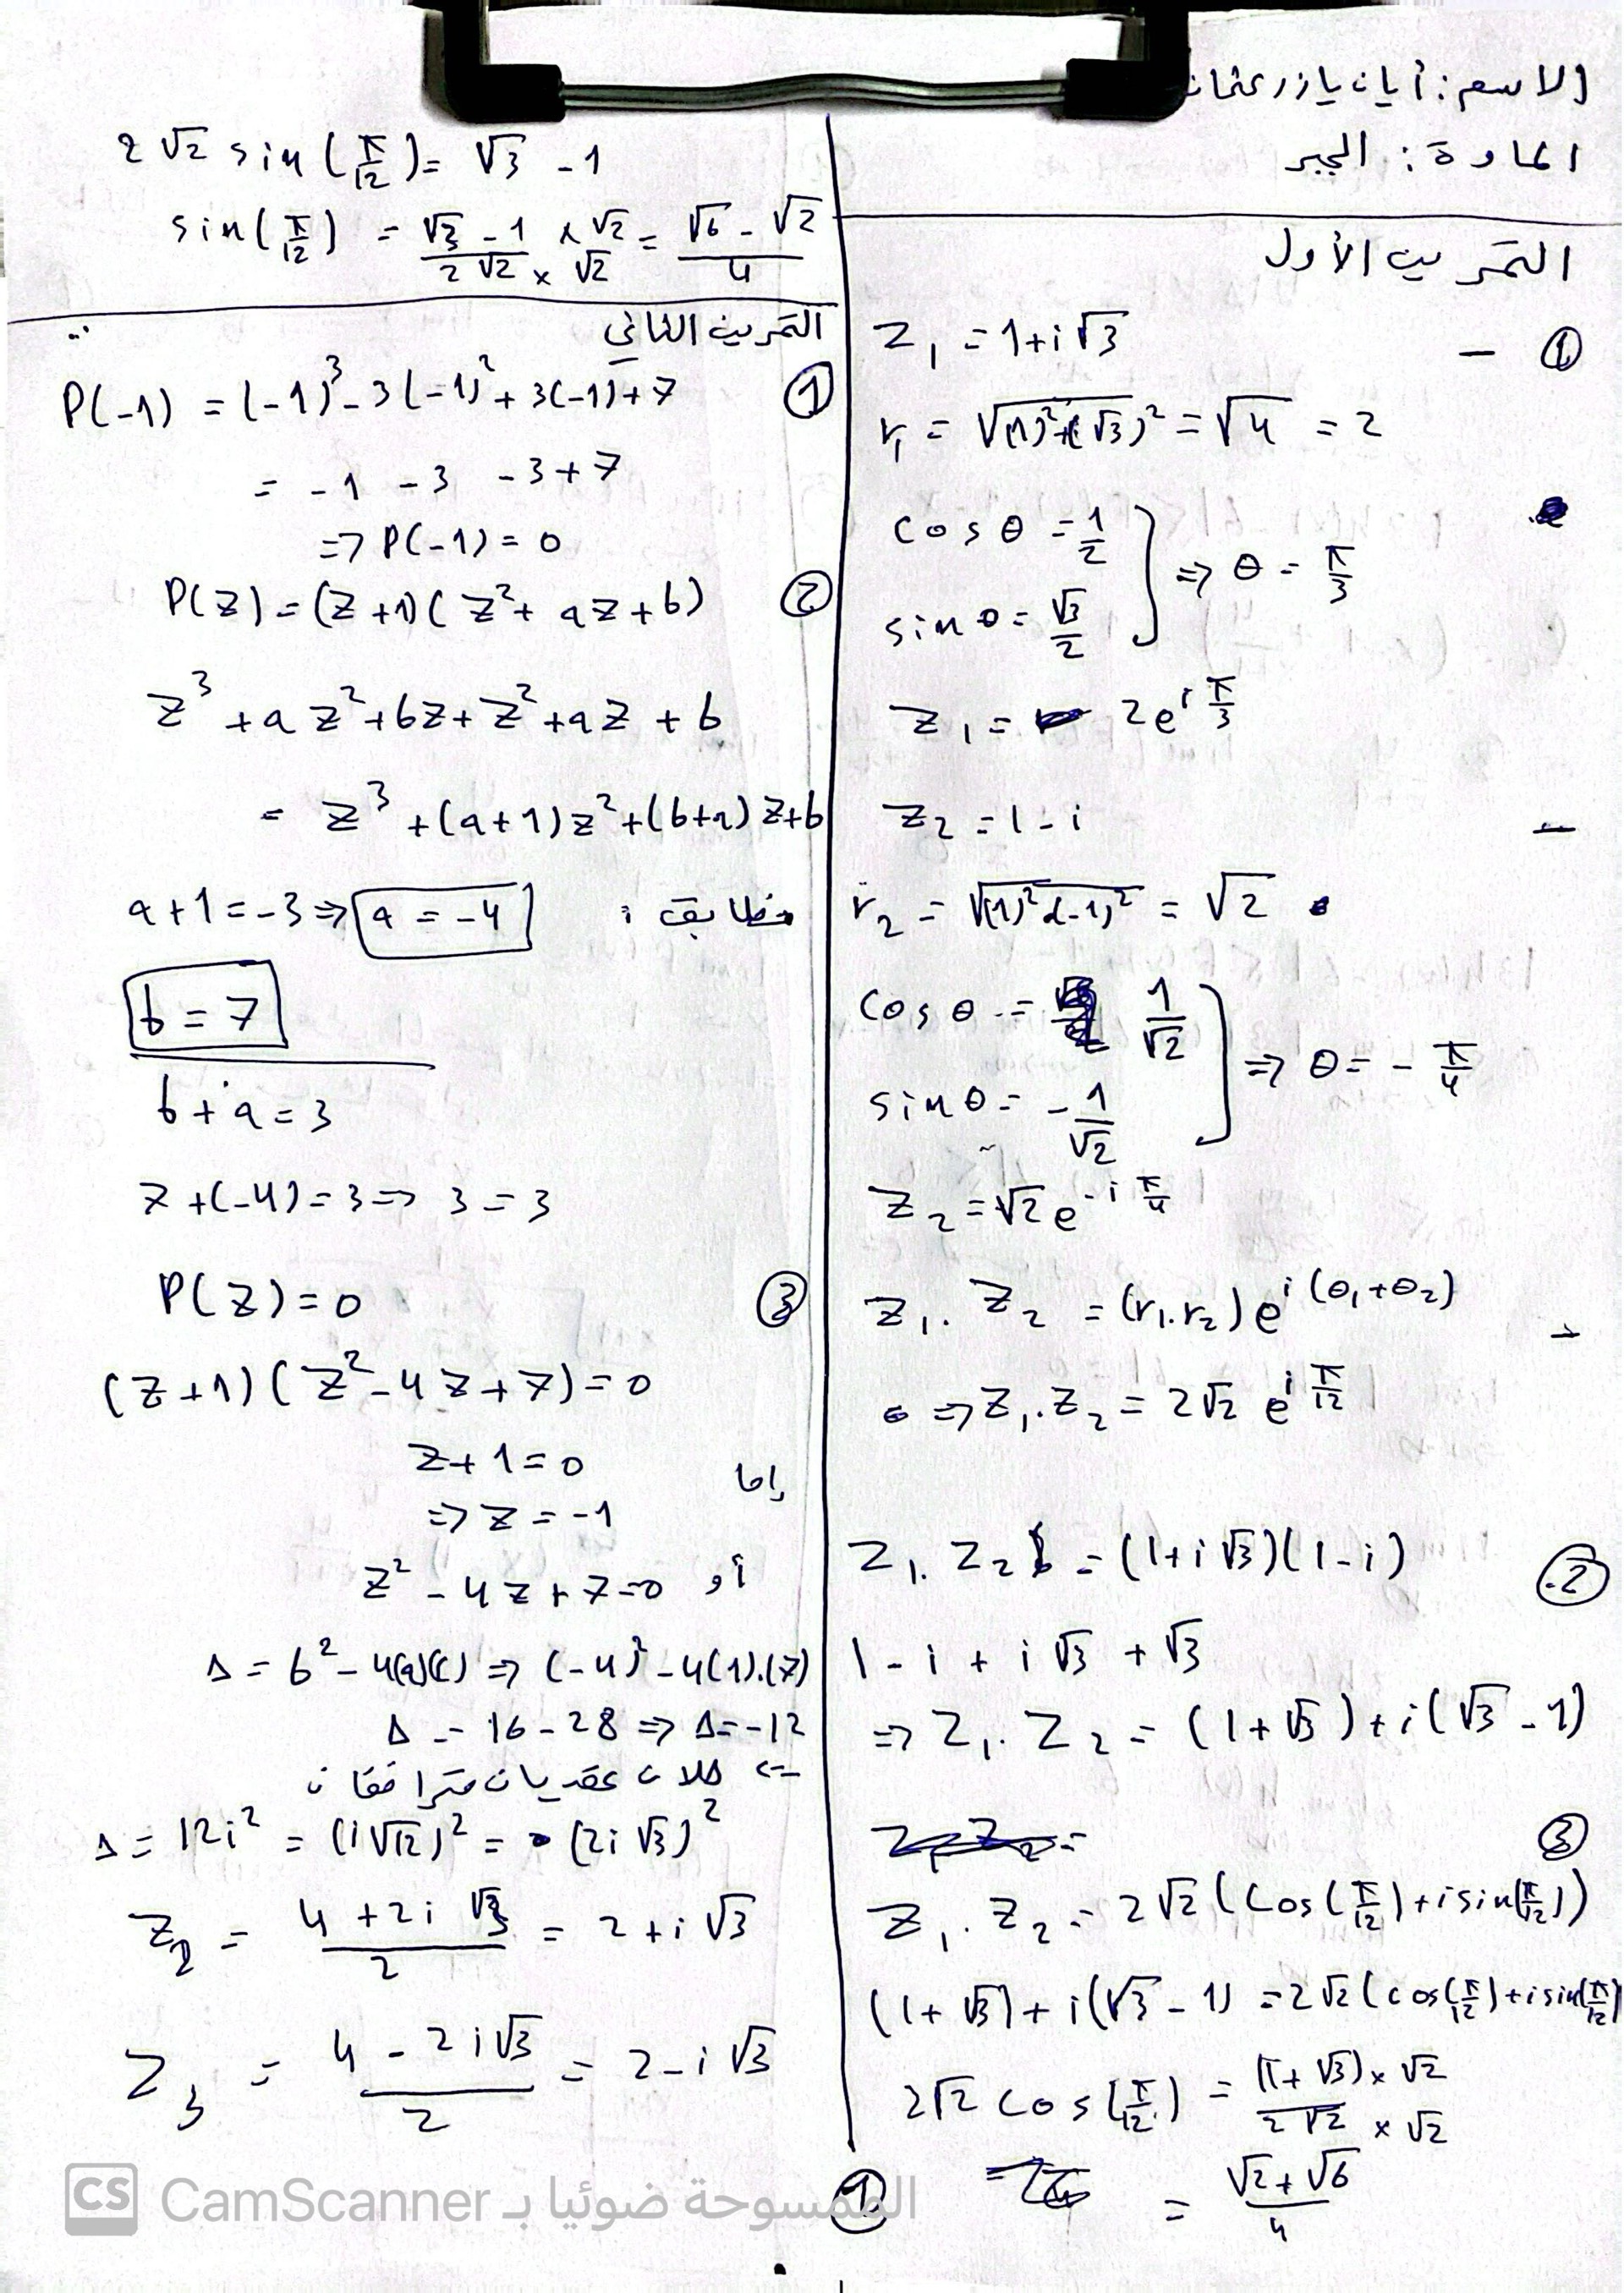 الاسم: أيان يازر عثمان
المادة: الجبر
التمرين الأول
① - z₁ = 1+i√3
r₁ = √(1)²+(√3)² = √4 = 2
cos θ = 1/2
sin θ = √3/2
⇒ θ = π/3
z₁ = 2e^(i π/3)
- z₂ = 1-i
r₂ = √(1)²+(-1)² = √2
cos θ = 1/√2
sin θ = -1/√2
⇒ θ = -π/4
z₂ = √2 e^(-i π/4)
- z₁.z₂ = (r₁.r₂) e^(i(θ₁+θ₂))
⇒ z₁.z₂ = 2√2 e^(i π/12)
② z₁.z₂ = (1+i√3)(1-i)
1-i+i√3+√3
⇒ z₁.z₂ = (1+√3)+i(√3-1)
③
z₁.z₂ = 2√2(cos(π/12)+i sin(π/12))
(1+√3)+i(√3-1) = 2√2(cos(π/12)+i sin(π/12)
2√2 cos(π/12) = (1+√3)×√2 / 2√2×√2
= √2+√6 / 4
①
2√2 sin(π/12) = √3-1
sin(π/12) = √3-1 ×√2 / 2√2×√2 = √6-√2 / 4
التمرين الثاني
① P(-1) = (-1)³-3(-1)²+3(-1)+7
= -1 -3 -3+7
⇒ P(-1) = 0
② P(z) = (z+1)(z²+az+b)
z³+az²+bz+z²+az+b
= z³+(a+1)z²+(b+a)z+b
مطابقة: a+1=-3 ⇒ a=-4
b = 7
b+a=3
7+(-4)=3 ⇒ 3=3
③ P(z)=0
(z+1)(z²-4z+7)=0
إما z+1=0
⇒ z=-1
أو z²-4z+7=0
Δ = b²-4(a)(c) ⇒ (-4)²-4(1).(7)
Δ = 16-28 ⇒ Δ=-12
⇐ حلان عقديان مترافقان
Δ = 12i² = (i√12)² = (2i√3)²
z₂ = 4+2i√3 / 2 = 2+i√3
z₃ = 4-2i√3 / 2 = 2-i√3
CS CamScanner الممسوحة ضوئيا بـ